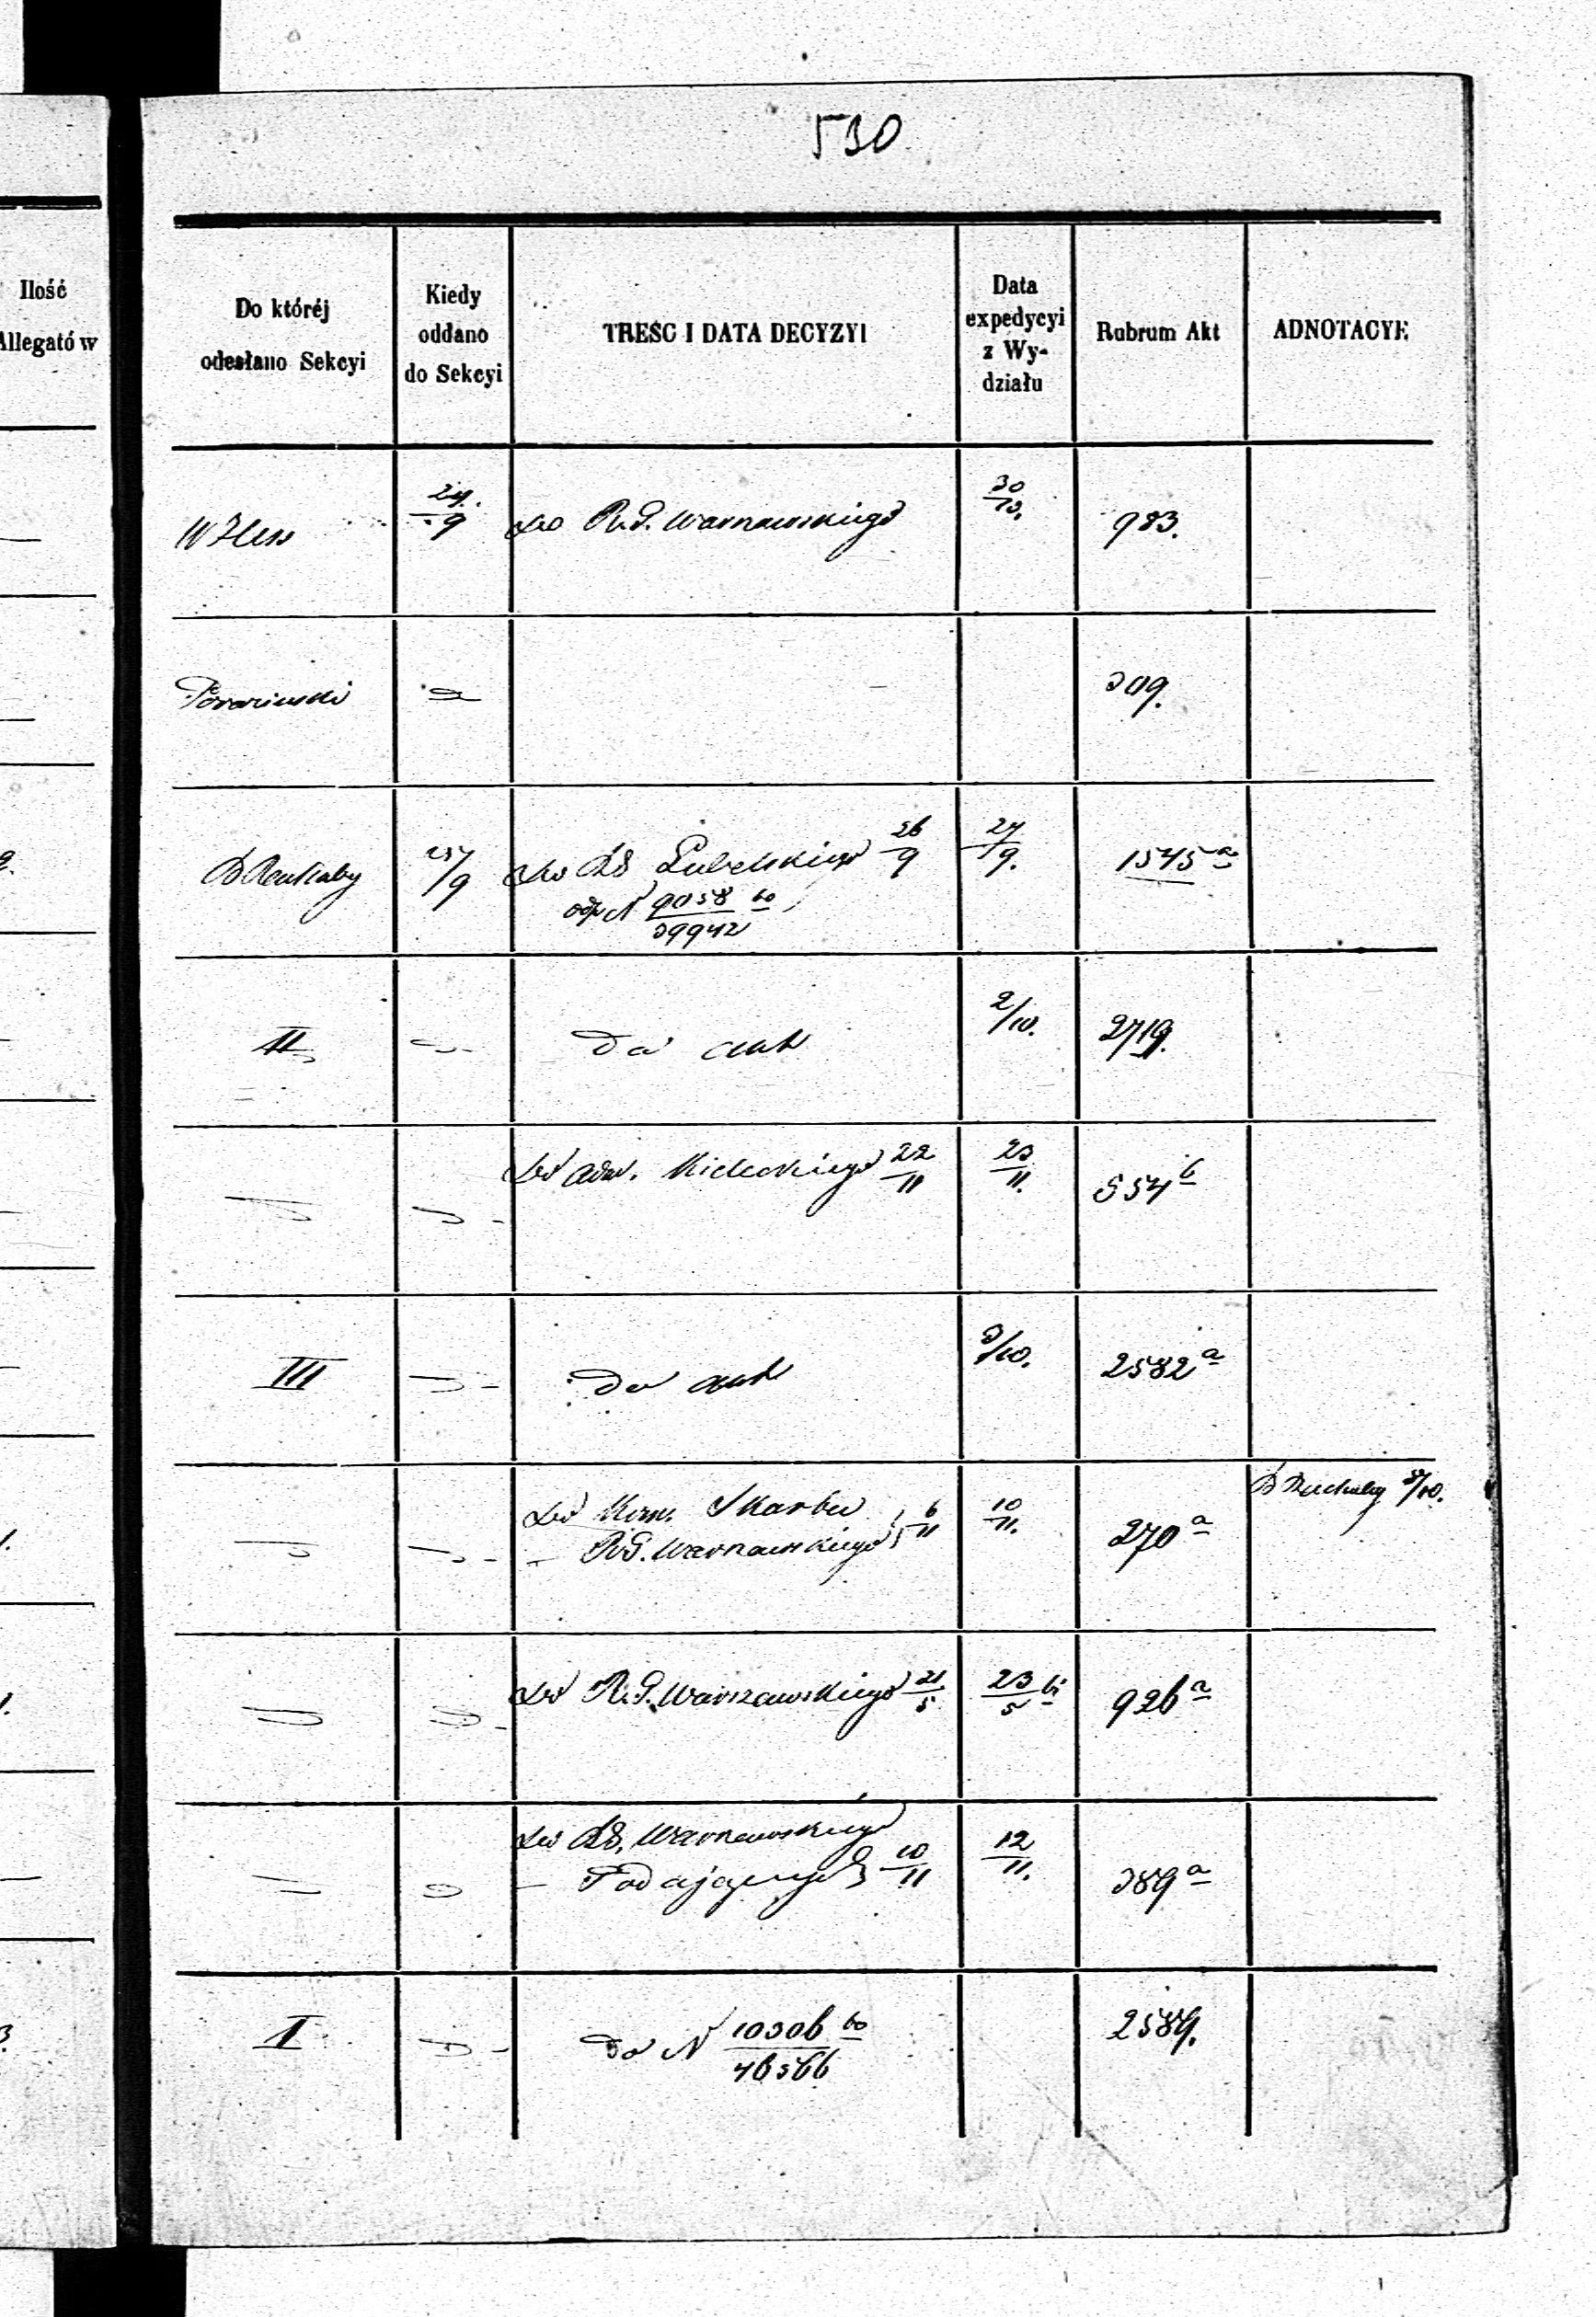 530
Ilość
Allegatów
Do któréj
odesłano Sekcyi
Kiedy
oddano
do Sekcyi
TREŚC I DATA DECYZYI
Data
expedycyi
z Wy-
działu
Rubrum Akt
ADNOTACYE
W Hess
24/9
Do R. G. Warszawskiego
30/10.
983.
309.
25/9
Do DS Lubelskiego 26/9
odp N 9058/39942
27/9.
1545 a
II
Do akt
2/10.
2719.
Do adw. Kieleckiego 22/11
23/11.
554 b
III
Do akt
3/10.
2582 a
Do Kom. Skarbu
– R. G. Warszawskiego } 6/11
10/11.
270 a
8/10.
Do R. G. Warszawskiego 21/5
23/5
926 a
Do DS. Warszawskiego
– Podającego } 10/11
12/11.
389 a
I
Do N 10306/46566
2589.